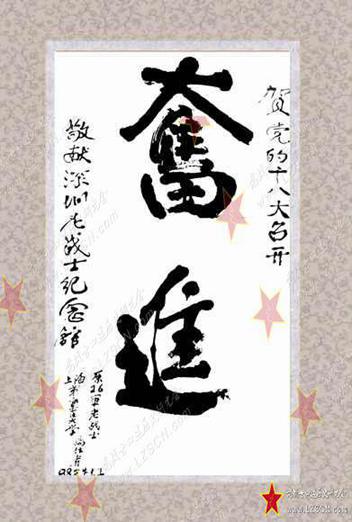 贺党的十八大召开
奮
進
敬献深圳老战士纪念馆
原26军老战士
上海市
www.LZSCH.com